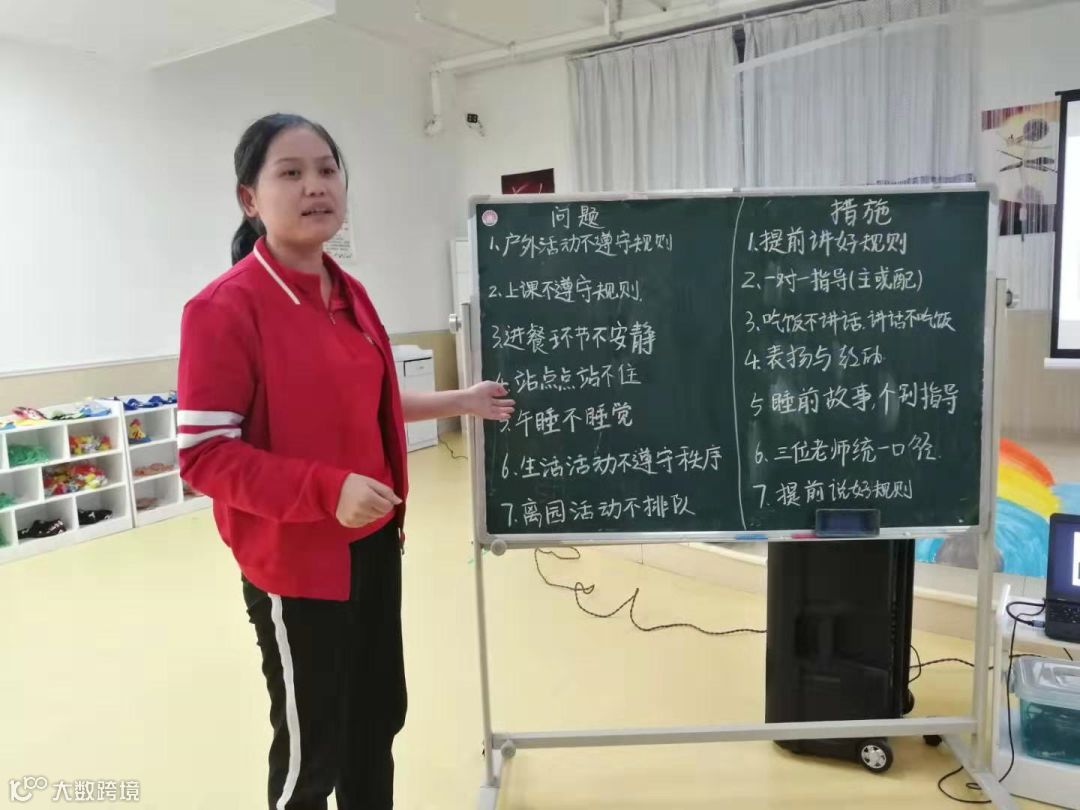 问题
1、户外活动不遵守规则
2、上课不遵守规则.
3、进餐环节不安静
4、站点点站不住
5、午睡不睡觉
6、生活活动不遵守秩序
7、离园活动不排队
措施
1.提前讲好规则
2、一对一指导(主或配)
3、吃饭不讲话.讲话不吃饭
4、表扬与
5、睡前故事,个别指导
6、三位老师统一口径.
7、提前说好规则
大数跨境